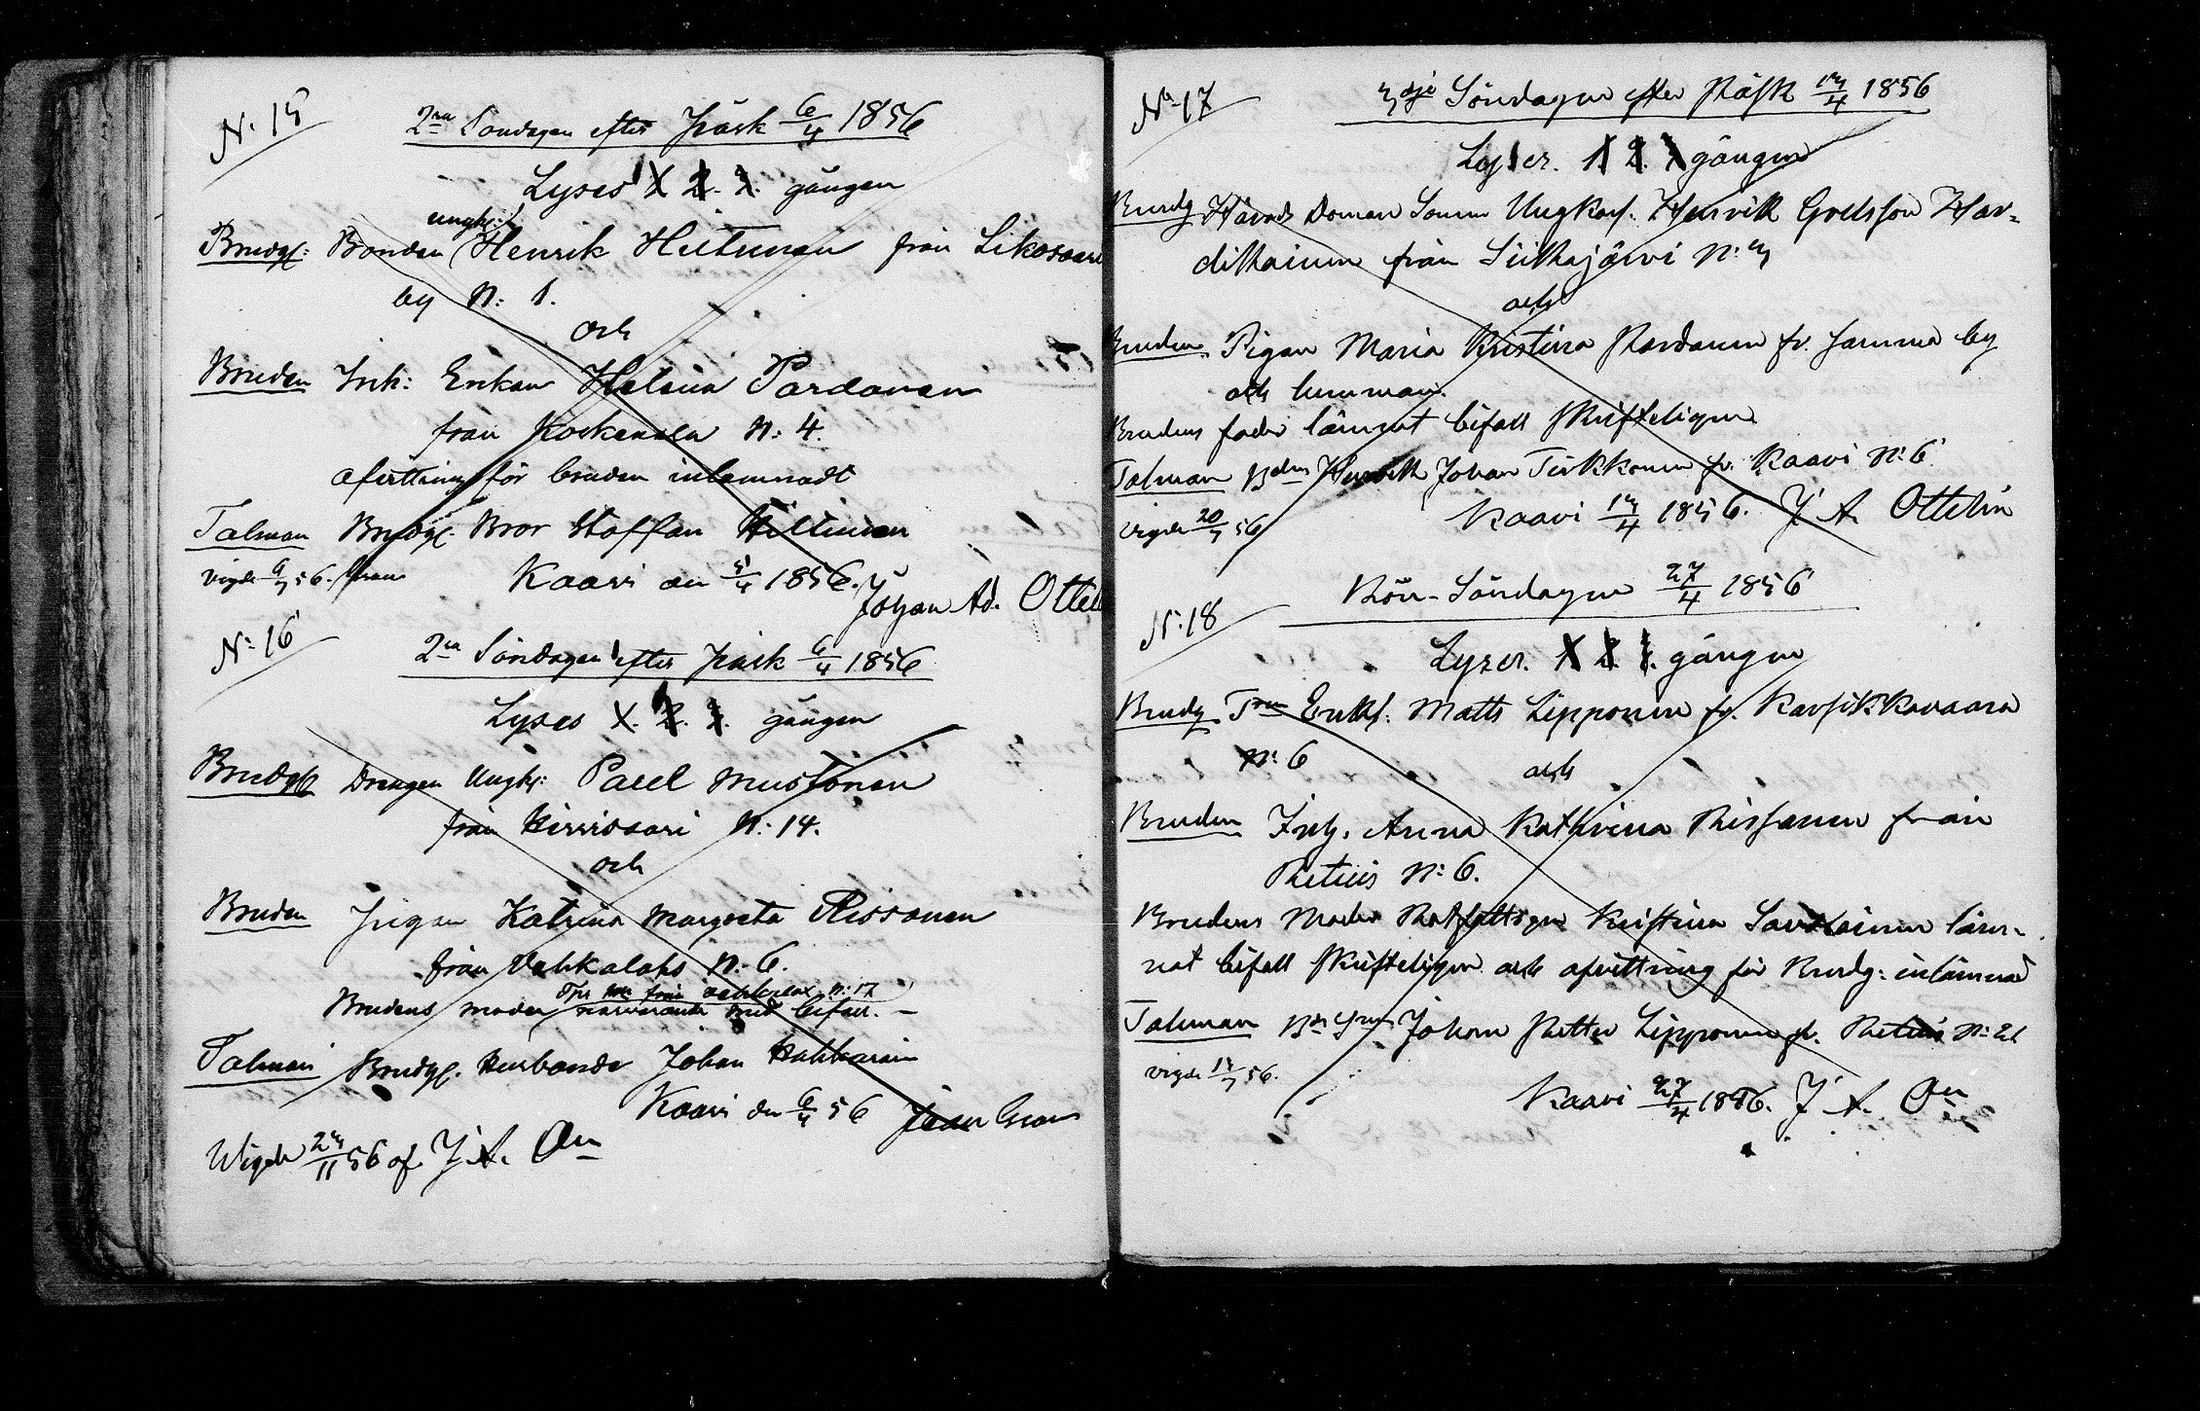 N: 15
2ra Söndagen efter Påsk 6/4 1856
Lyses 1 2. 3. gången
ungk:
Brudg: Bonden Henrik Hiltunen från Likosaari
by N: 1.
och
Bruden Ink: Enkan Helena Pardanen
från Koskenala N: 4.
Afvittring för bruden inlemnadt
Talman Brudg. Bror Staffan Hiltunen
Vigde 6/7 56.
Kaavi den 5/4 1856. Johan Ad. Ottel
N: 16
2ra Söndagen efter Påsk 6/4 1856
Lyses 1. 2. 3. gången
Brudg Drängen Ungk: Paul Mustonen
från N: 14.
och
Bruden Pigan Katrina Margreta Rissanen
från Vehkalaks N: 6.
från N: 17
Brudens moder närvarande med bifall. –
Talman Brudg. Husbonde Johan
Kaavi den 6/4 56
Wigde 11 56 af J. A. On
No 17
3dje Söndagen efter Påsk 13/4 1856
Lyser. 1. 2. 3 gången
Brudg Härads Domare Sonen Ungkarl. Henrik Grelsson Har-
dikainen från Siikajärvi N: 3
och
Bruden Pigan Maria Kristina Pardanen fr. samma by
och nummer.
Brudens fader lämnat bifall skrifteligen
Talman Bden Henrik Johan Tirkkonen fr. Kaavi N: 6
Vigde 20/7 56
Kaavi 13/4 1856. J. A. Ottelin
Bön-Söndagen 27/4 1856
N: 18
Lyser. 1 2. 3. gången
Brudg Enkl: Matts Lipponen fr. Karsikkovaara
N: 6
och
Bruden Inh. Anna Kathrina Rissanen från
Retuis N: 6.
Brudens Moder Kristina Savolainen läm-
nat bifall skrifteligen och afvittring för Brudg: inlämnad
Talman Johan Petter Lipponen fr. Retuis N: 21
vigde 13/7 56.
Kaavi 27/4 1856. J. A. On